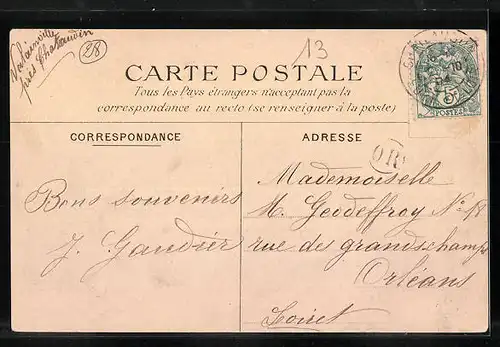 Valainville
près Chateaudun
28
13
CARTE POSTALE
Tous les Pays étrangers n'acceptant pas la
correspondance au recto (se renseigner à la poste)
CORRESPONDANCE
Bons souvenirs
J. Gaudier
ADRESSE
OR
Mademoiselle
M. Geodeffroy No 18
rue des grandschamps
Orléans
Loiret
POSTES